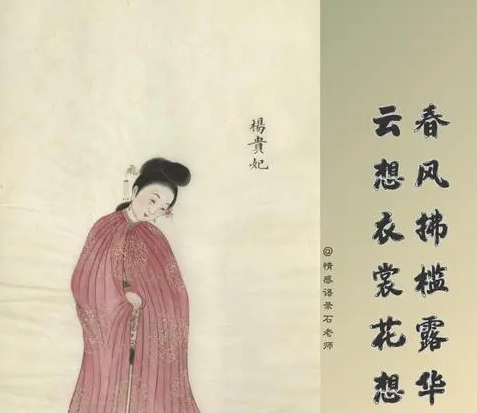 楊貴妃
@情感语录石老师
云想衣裳花想
春风拂槛露华